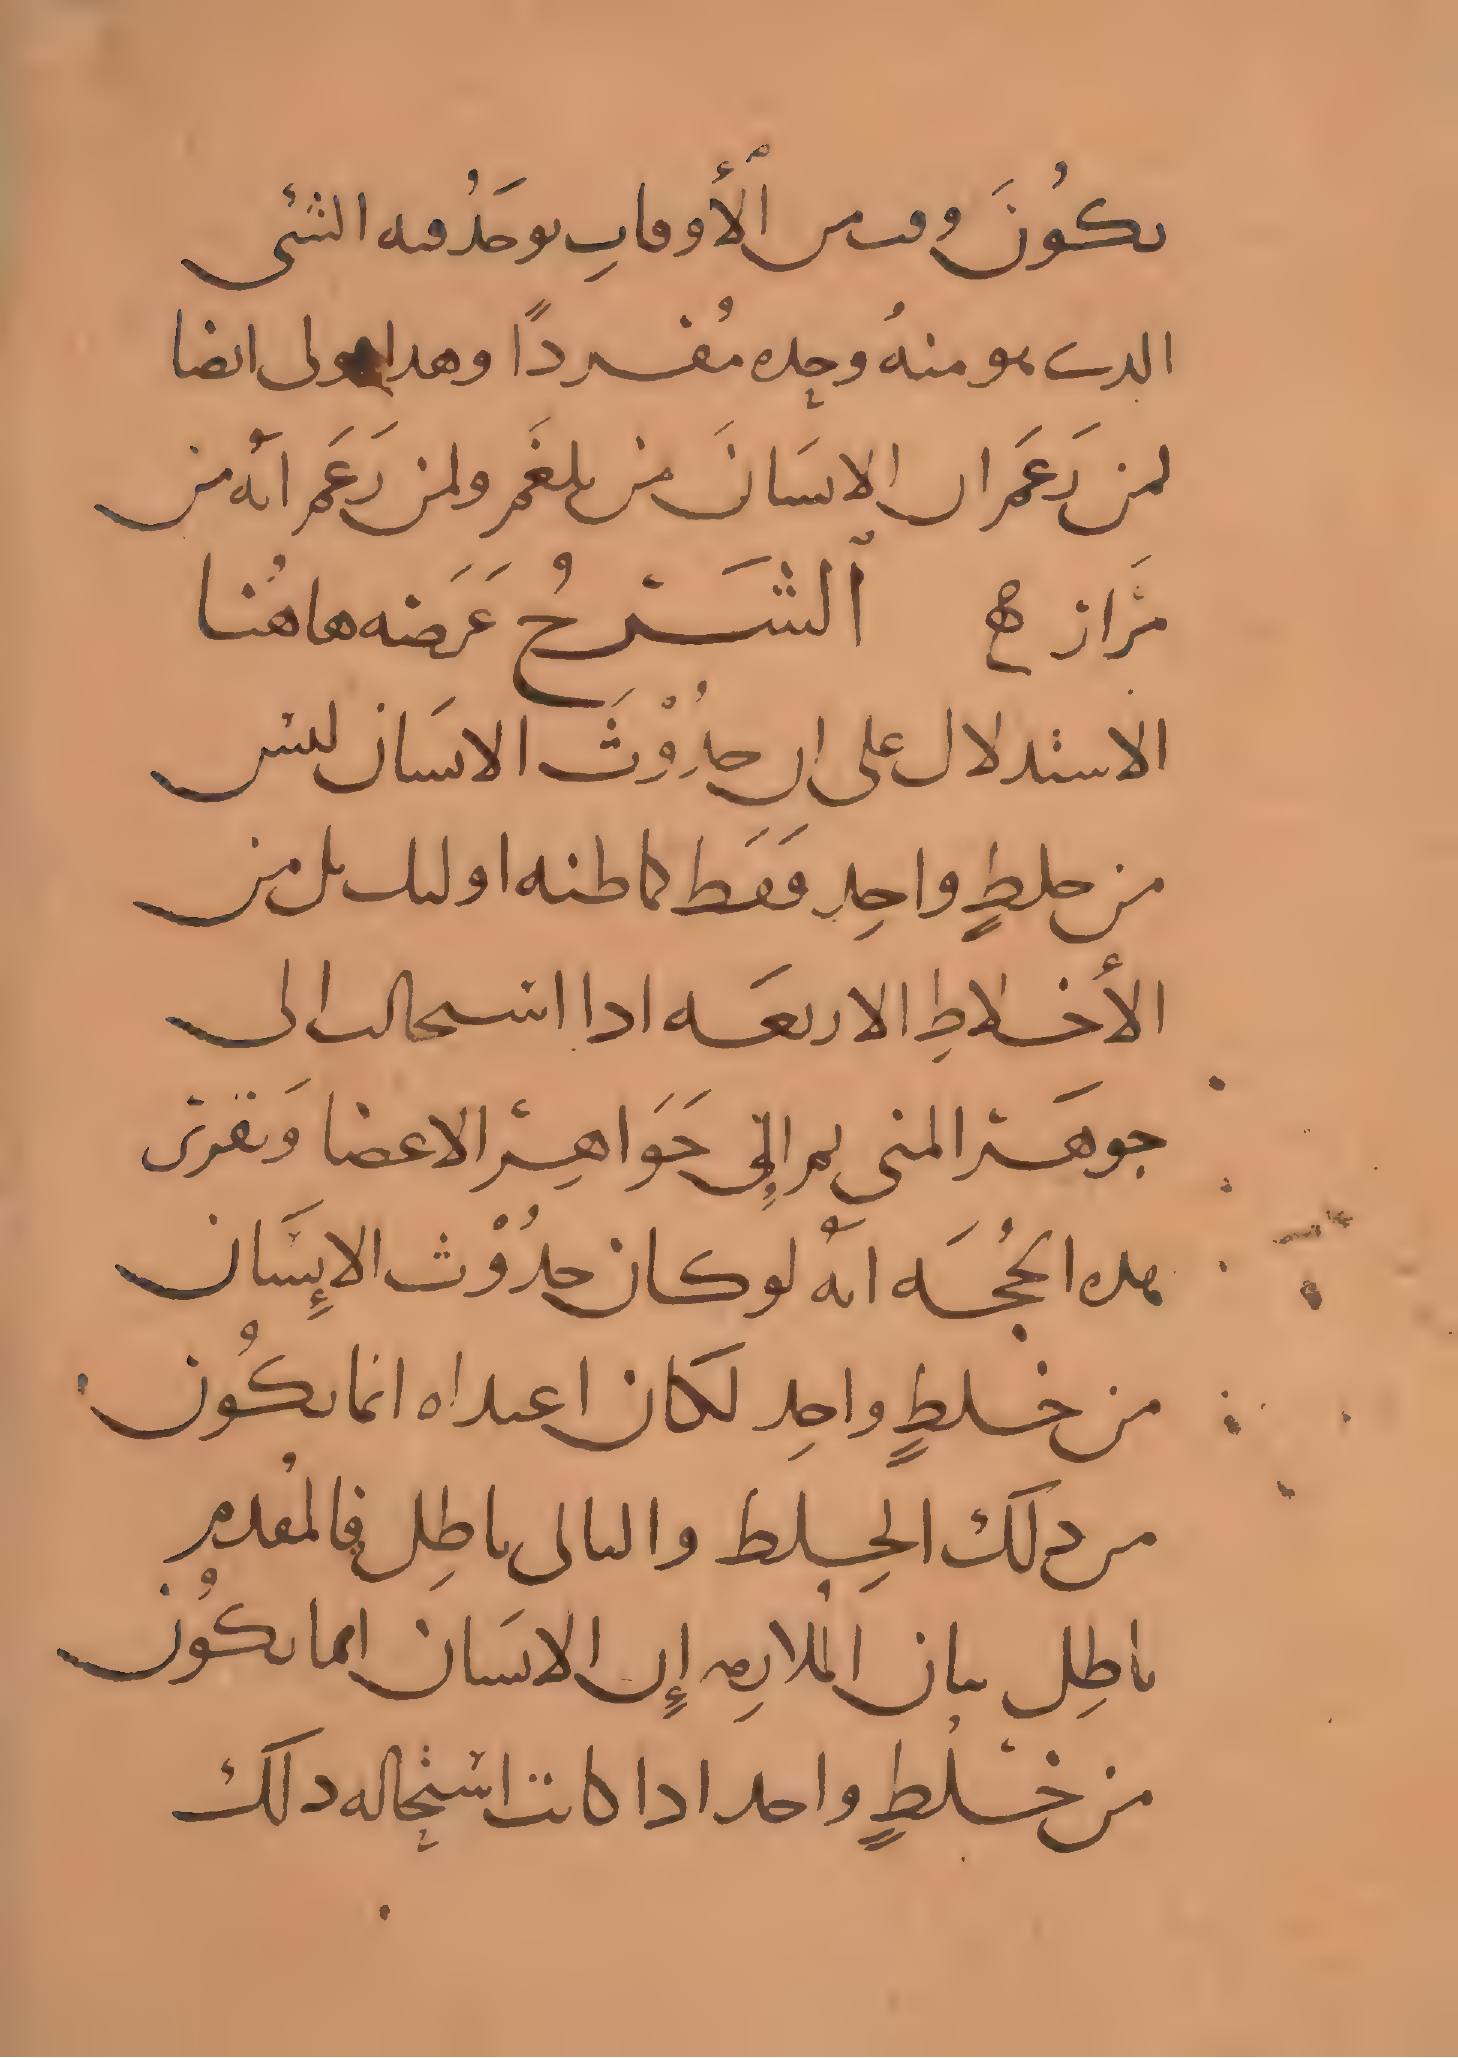 يكُونَ وقت من ٱلأوقاتِ يوجَدُ فيه الشئ
الذي هو منهُ وحده مُفردًا وهذا قولى ايضا
لمن زَعَمَ ان الانسَانَ من بلغَم ولمن زَعَمَ انّه من
مَرار ٱلشَرْحُ غَرَضه هاهُنا
الاستدلال على ان حدُوْثَ الانسَان ليس
من خلطٍ واحِدٍ فَقَط كما ظنه اوليك بل من
الأخلاطِ الاربعَه اذا استحالت الى
جوهَر المنى ثم الِى جَوَاهِر الاعضا وَتقرير
هذه الحُجَه انّه لو كان حدُوْث الاِنسَان
من خلطٍ واحِد لكَان اغتداه انما يكُون
من ذلكَ الخِلط والتالى باطِل فالمقدم
باطِل بيان الملازِمه إن الانسَان انما يكُون
من خلْطٍ واحد اذا كانت استحاله ذلكَ